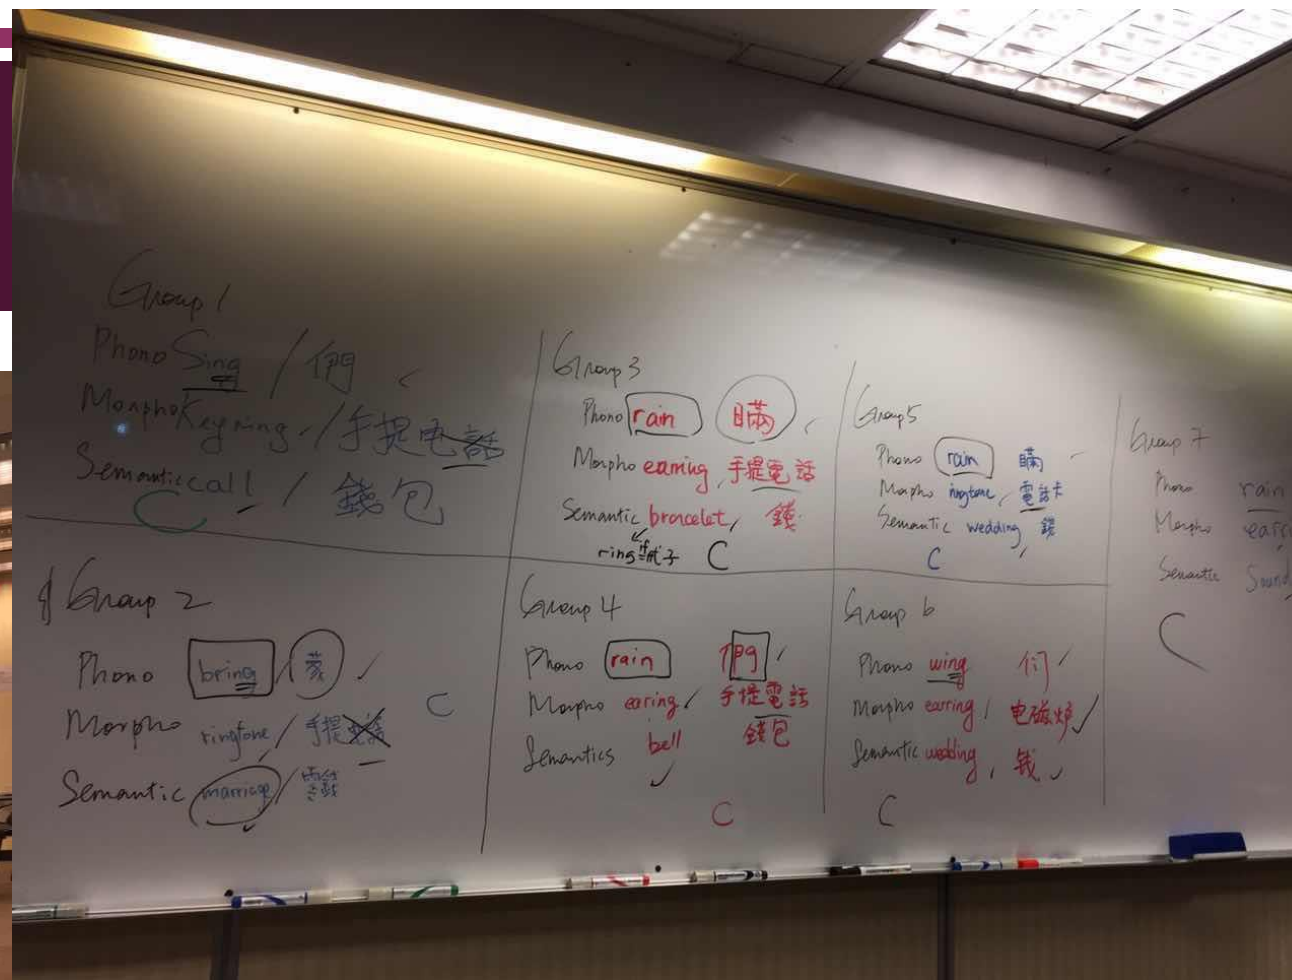 Group 1
Phono Sing / 們
Morpho Keyring / 手提电話
Semantic call / 錢包
C
Group 2
Phono bring /
Morpho ringtone / 手提電話
Semantic marriage /
C
Group 3
Phono rain 瞞
Morpho earring, 手提電話
Semantic bracelet, 錢
ring 戒子 C
Group 4
Phono rain 們
Morpho earing / 手提電話
Semantics bell 錢包
C
Group 5
Phono rain 瞞
Morpho ringtone, 電話卡
Semantic wedding, 錢
C
Group 6
Phono wing 们
Morpho earring, 电磁炉
Semantic wedding, 钱
C
Group 7
Phono rain
Morpho
Semantic Sound
C